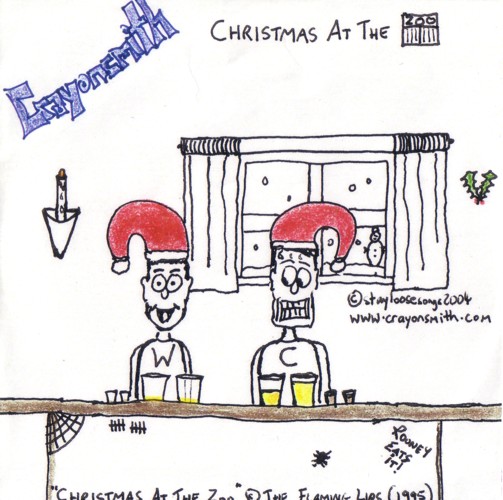 Crayonsmith
CHRISTMAS AT THE ZOO
© stayloosesongs 2004
www.crayonsmith.com
W
C
ROONEY
EATS
IT!
"CHRISTMAS AT THE ZOO" © THE FLAMING LIPS (1995)